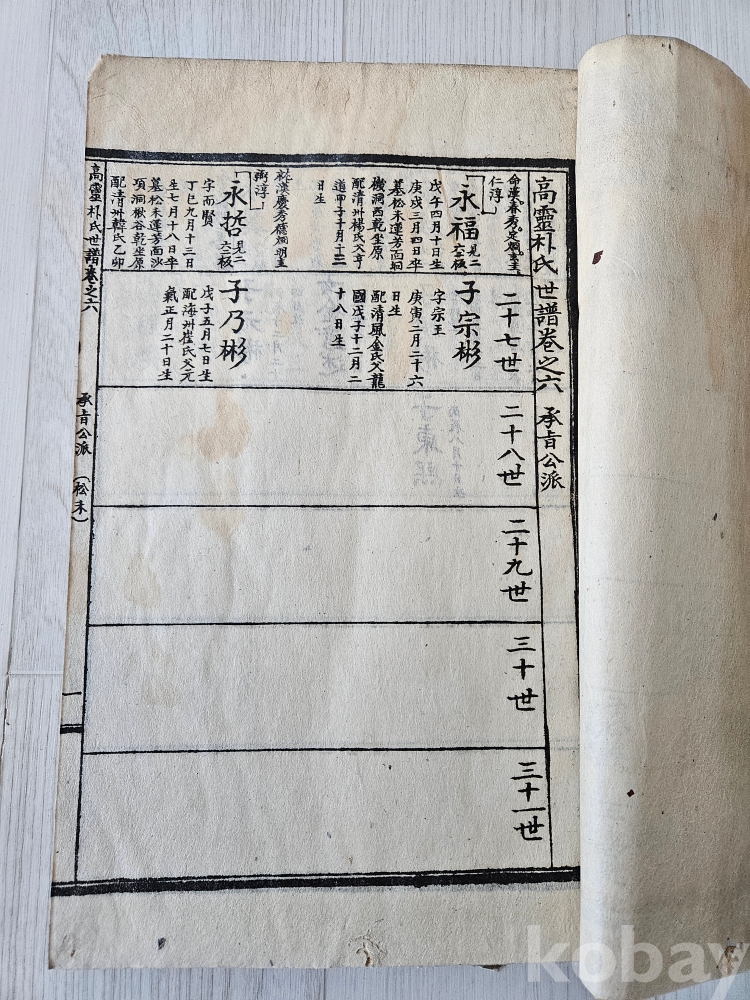 高靈朴氏世譜卷之六 承旨公派
二十七世
二十八世
二十九世
三十世
三十一世
仁淳
永福 見二
六二板
戊午四月十日生
庚戌三月四日卒
墓松禾蓮芳面垌
機洞西乾坐原
配清州楊氏父亨
道甲子十月十三
日生
子宗彬
字宗王
庚寅二月二十六
日生
配清風金氏父龍
國戊子十二月二
十八日生
永哲 見二
六二板
字而賢
丁巳九月十三日
生七月十八日卒
墓松禾蓮芳面沙
項洞楸谷乾坐原
配清州韓氏乙卯
子乃彬
戊子五月七日生
配海州崔氏父元
氣正月二十日生
高靈朴氏世譜卷之六
承旨公派
(松禾)
一
kobay